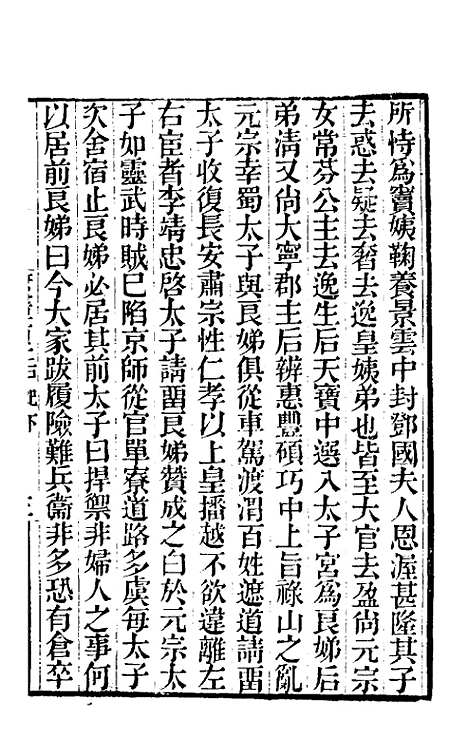 所恃為竇姨鞠養景雲中封鄧國夫人恩渥甚隆其子
去惑去疑去奢去逸皇姨弟也皆至大官去盈尚元宗
女常芬公主去逸生后天寶中選入太子宮為良娣后
弟淸又尚大寧郡主后辨惠豐碩巧中上旨祿山之亂
元宗幸蜀太子與良娣俱從車駕渡渭百姓遮道請畱
太子收復長安肅宗性仁孝以上皇播越不欲違離左
右宦者李靖忠啓太子請畱良娣贊成之白於元宗太
子如靈武時賊已陷京師從官單寮道路多虞每太子
次舍宿止良娣必居其前太子曰捍禦非婦人之事何
以居前良娣曰今大家跋履險難兵衞非多恐有倉卒